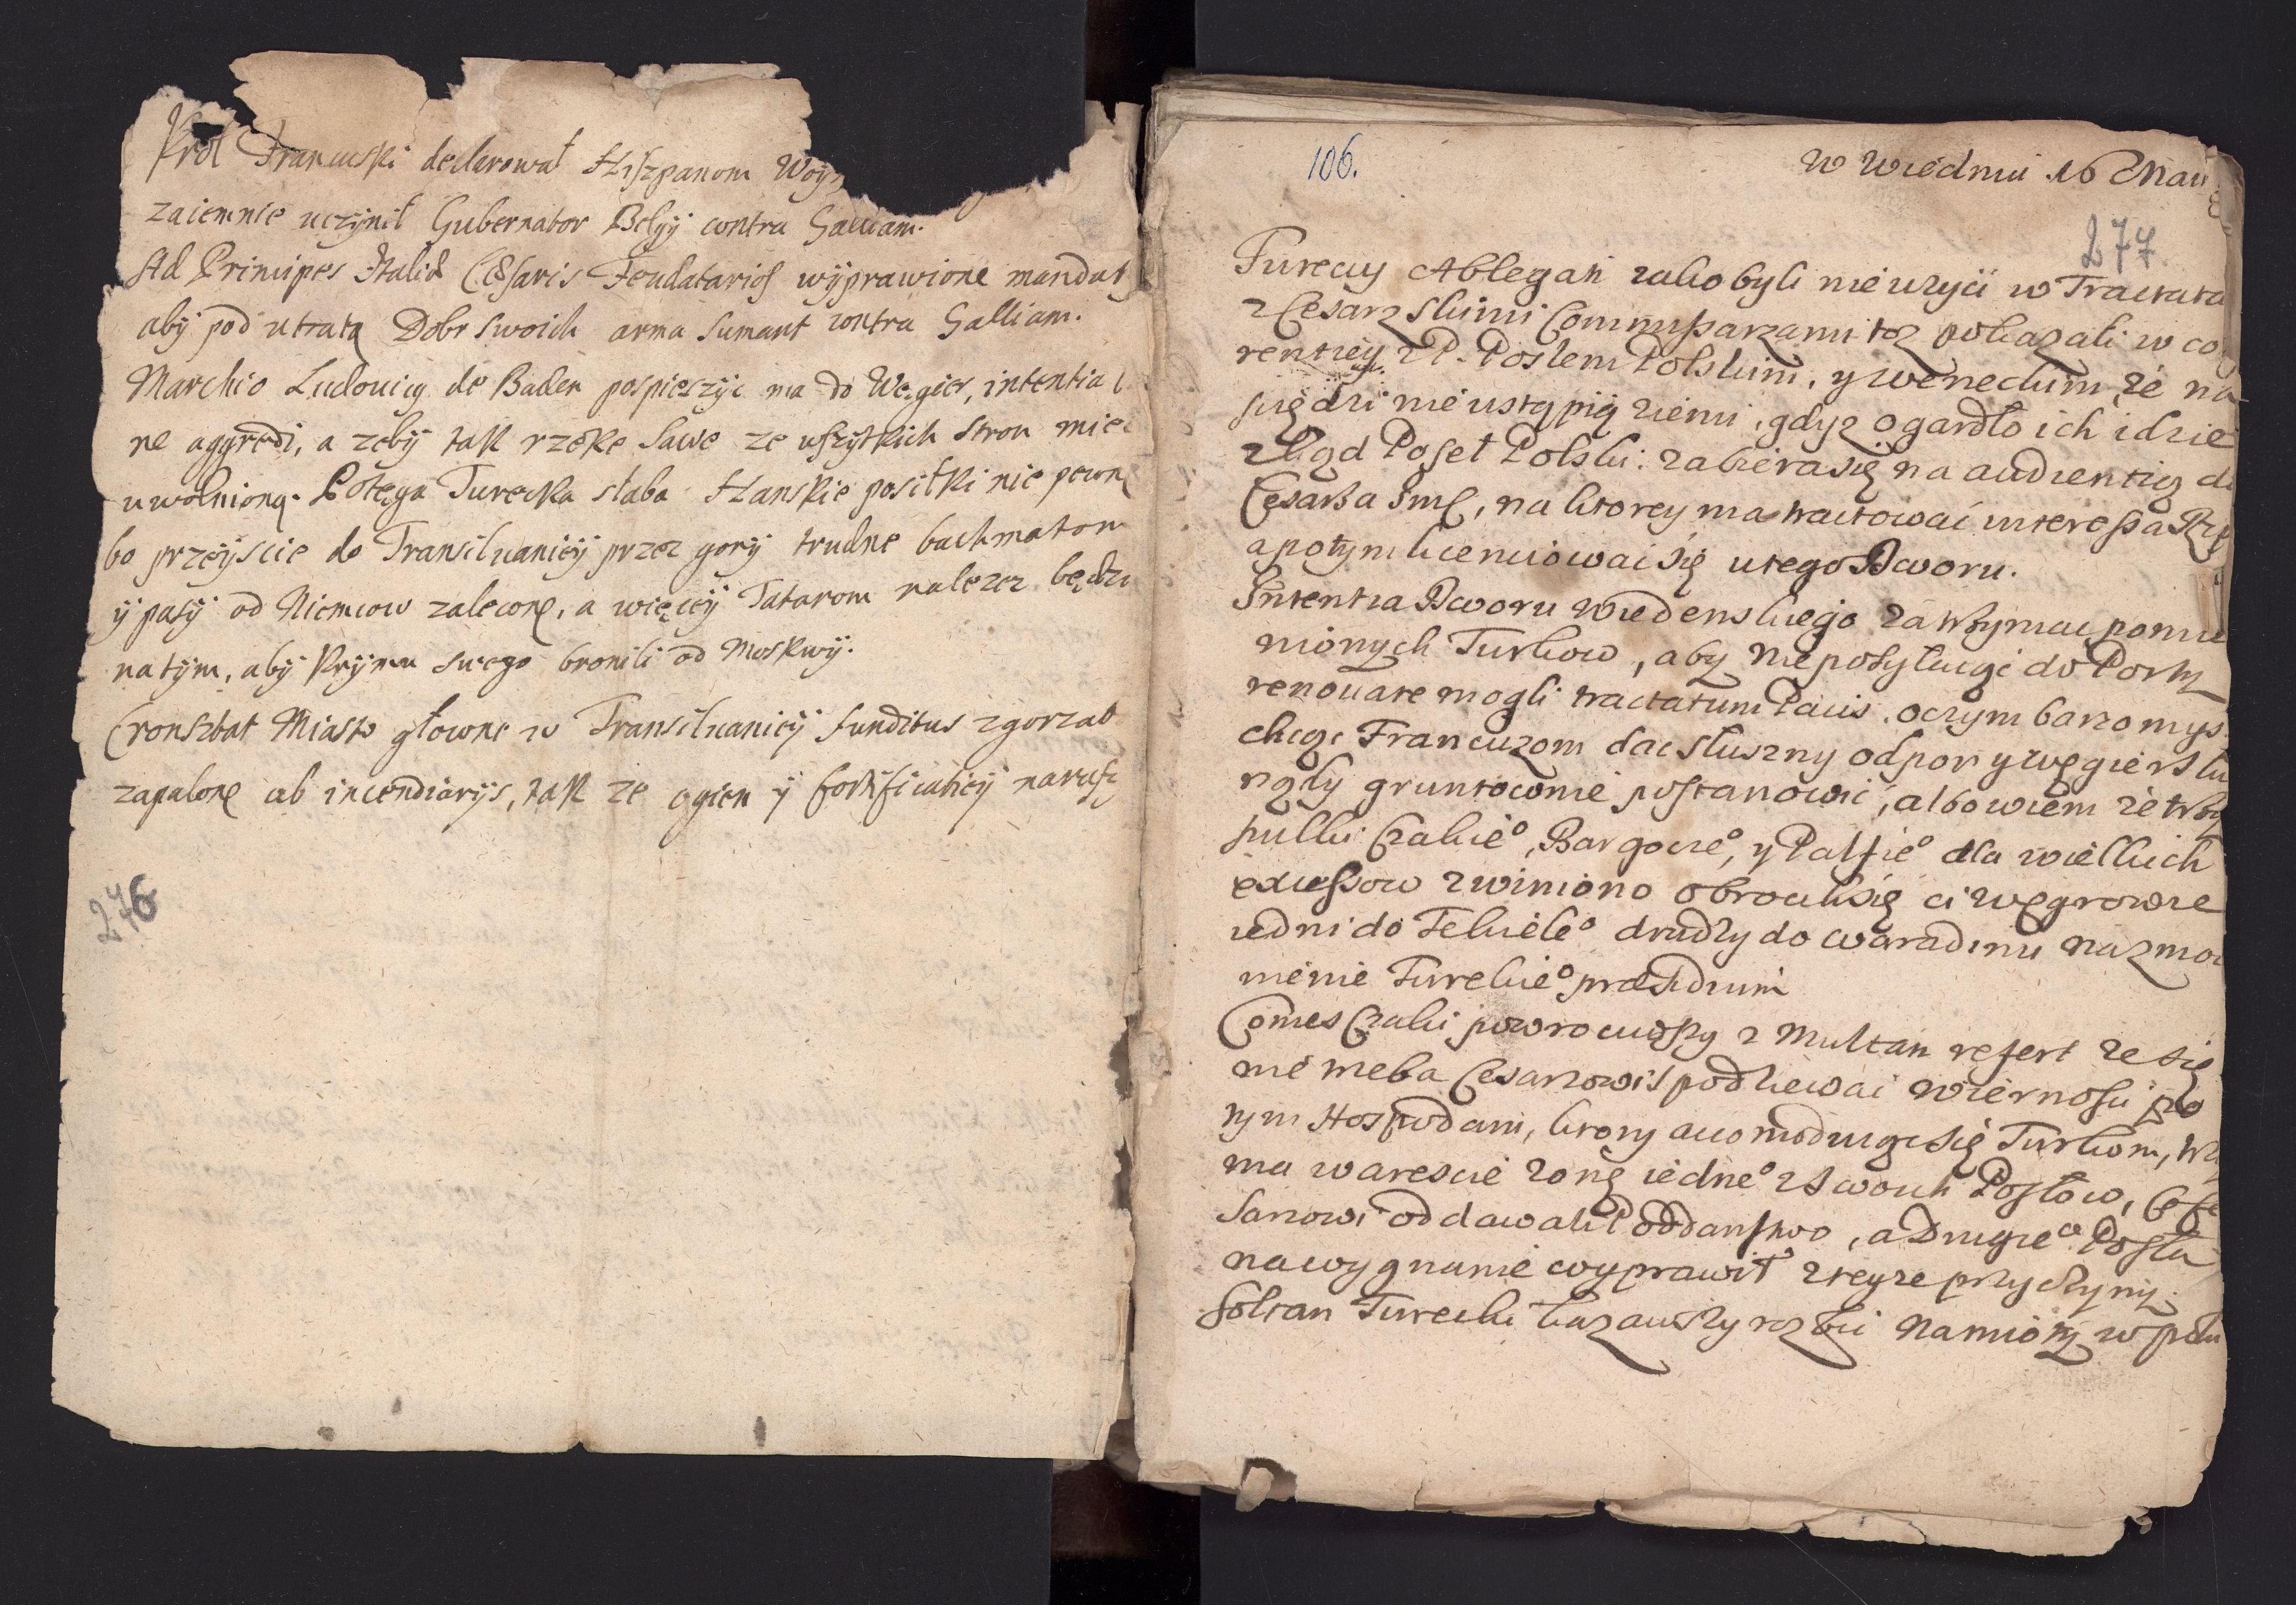 Krol Francuski declarowal Hiszpanom Woy
zaiemnie uczynil Gubernator Belgij contra Galliam.
Ad Principes Italiæ Cæsaris Feudatarios wyprawione mandat
aby pod utratą Dobr swoich arma sumant contra Galliam.
Marchio Ludovicus de Baden pospieszyc ma do Węgier, intentia
ne aggredi, a zeby tak rzeke Sawe ze wszytkich stron miec
uwolnioną. Potęga Turecka słaba Hanskie posiłki nie pewne
bo przeyscie do Transilvaniey przez gory trudne bachmatom
y pasy od Niemcow zalecone, a więcey Tatarom nalezec będzi
natym, aby Krymu swego bronili od Moskwy.
Cronsztat Miasto głowne w Transilvaniey funditus zgorzał
zapalone ab incendiarijs, tak ze ogien y fortificatiey narusz
276
106.
w Wiedniu 16 Maii
277
Tureccy Ablegati iako byli nieuzyci w Tractata
z Cesarzskimi Commissarzami toz pokazali w co
rentiey z P. Posłem Polskim, y Weneckim, że na
piędzi nieustąpią ziemi, gdyz o gardło ich idzie
zkąd Poseł Polski zabiera się na audientią do
Cesarza Jmć, na ktorey ma tractować interessa Rzp
a potym licenciować się u tego Dworu.
Intentia Dworu Wiedenskiego zatrzymac pomie
nionych Turkow, aby nieposyłaiąc do Porty
renovare mogli tractatum Pacis, o czym barzo mys
chcąc Francuzom dac słuszny odpor y węgierski
rządy gruntownie postanowić, albowiem że trzy
pułki Czakie°, Bargocie°, y Palfie° dla wielkich
excessow zwiniono obrocili się ci Węgrowie
iedni do Tekiele° drudzy do Waradinu na zmoc
nienie Tureckie° præsidium
Comes Czaki powrociwszy z Multan refert ze się
nie trzeba Cesarzowi spodziewać wiernosci po
tym Hospodaru, ktory accomoduiąc się Turkom,
ma w arescie zonę iedne° z swoich Posłow, Ce
sarzowi oddawał Poddanstwo, a Drugie° Posła
na wygnanie wyprawił z teyze przyczyny.
Sołtan Turecki kazawszy rozbić namioty w polu